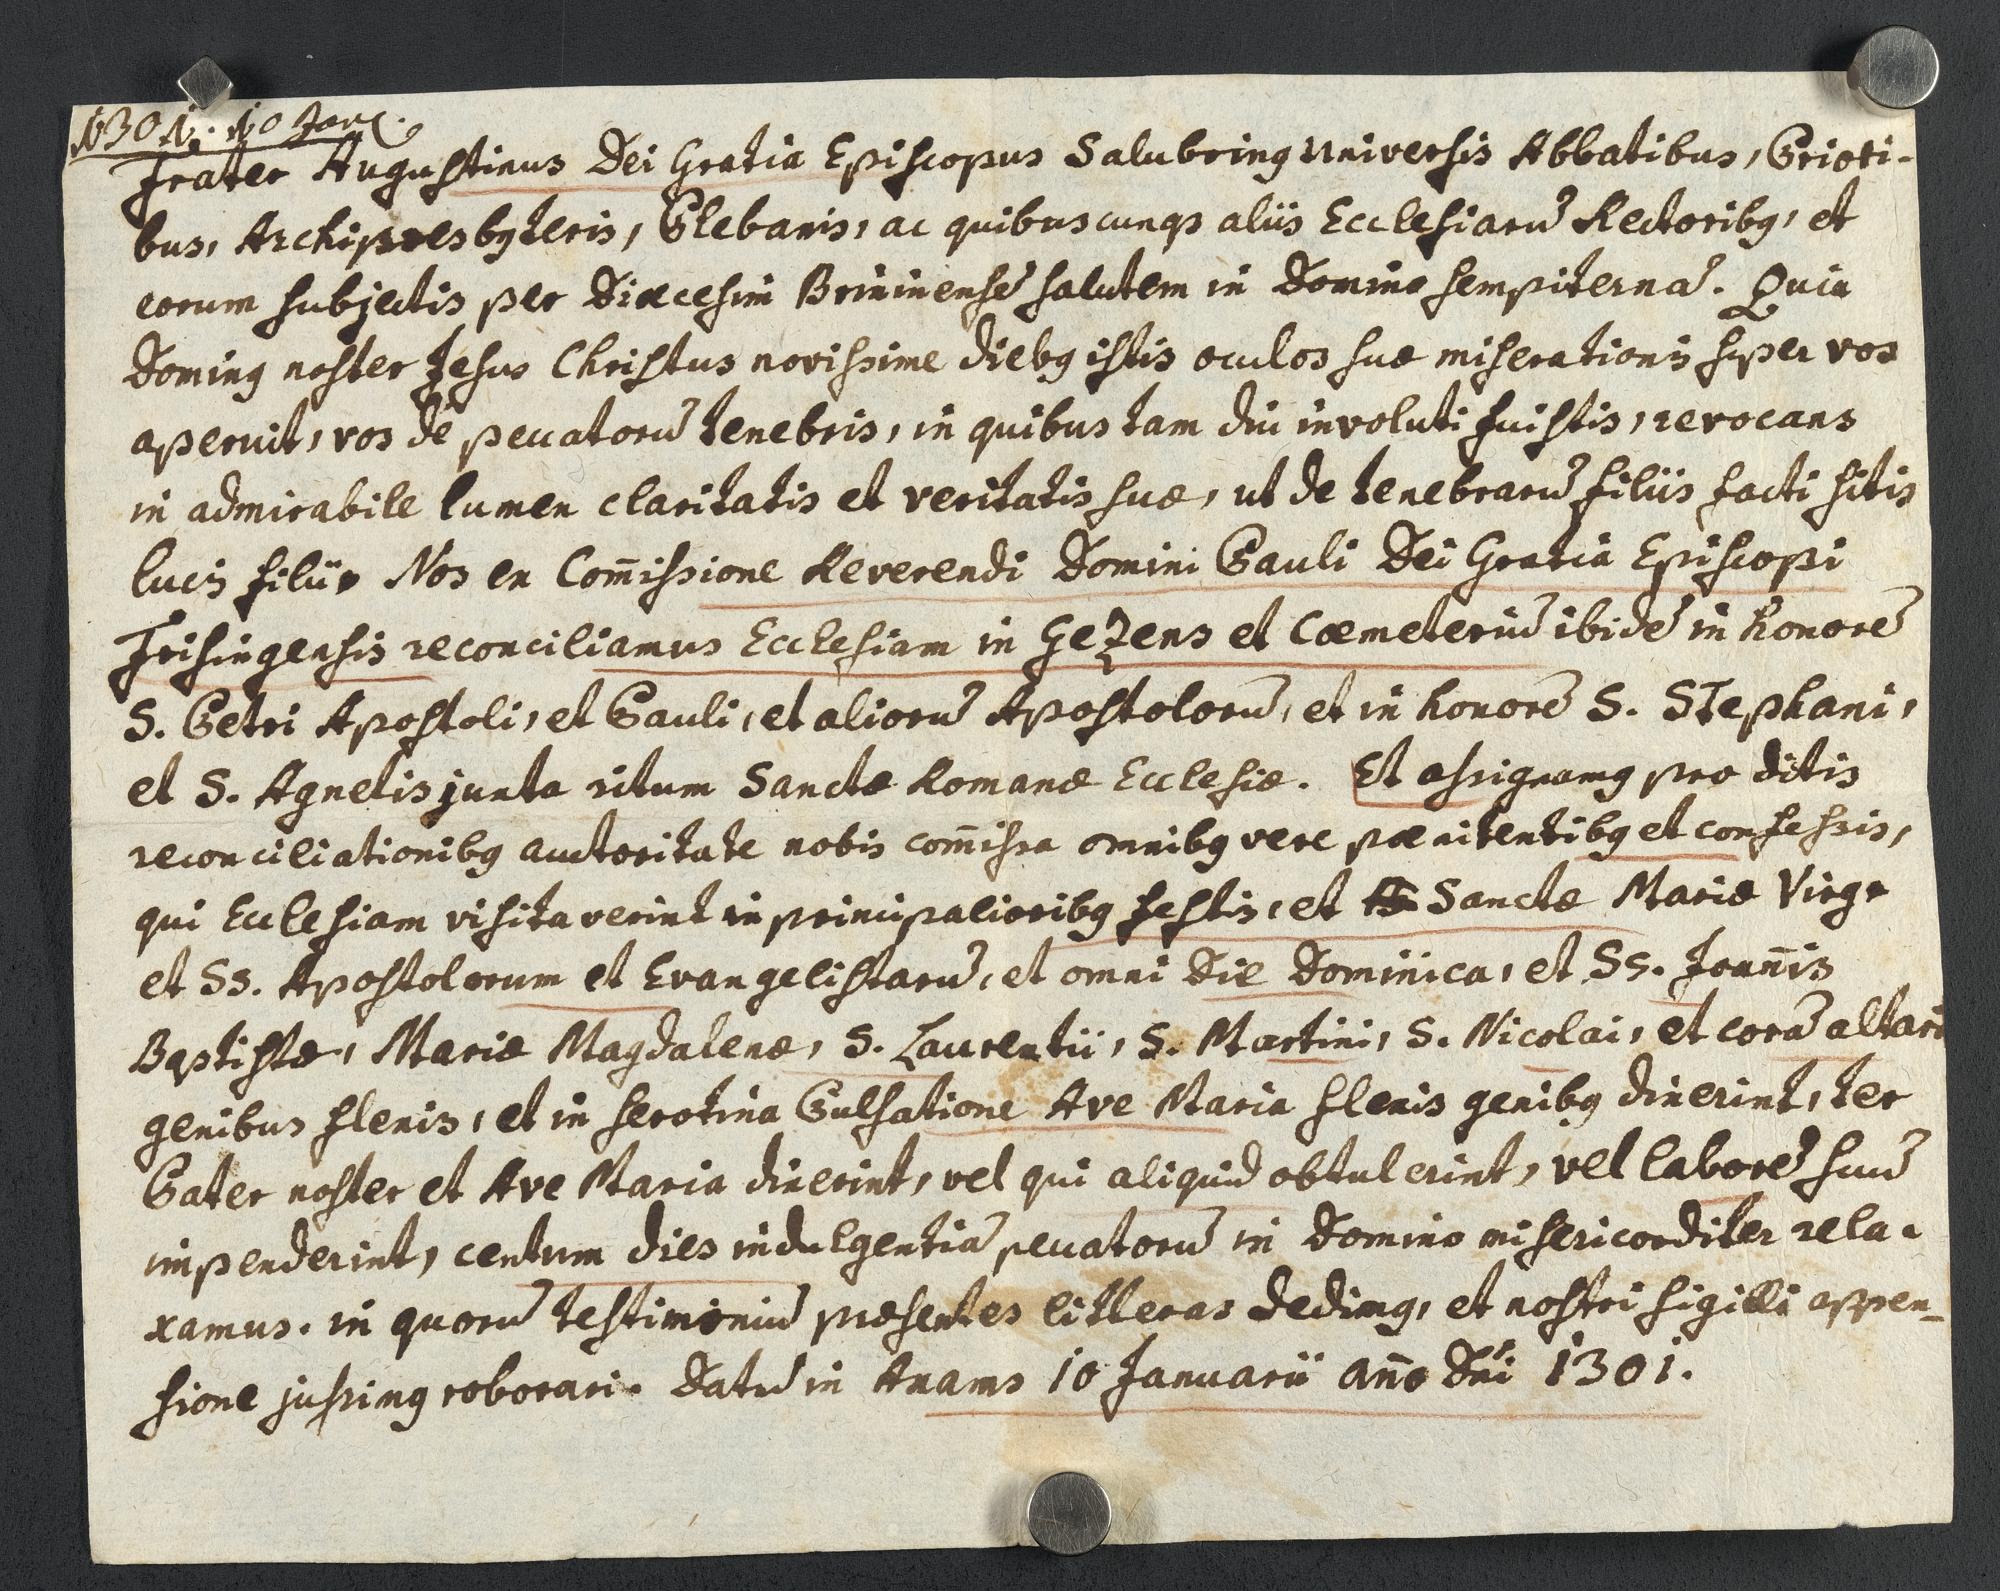 1301. 10 Jan.
Frater Augustinus Dei Gratia Episcopus Salubring universis Abbatibus, Priori-
bus, Archipresbyteris, Plebanis, ac quibuscunqs aliis Ecclesiarū Rectoribꝰ, et
eorum subjectis per Diœcesim Brixinensē salutem in Domino sempiternā. Quia
Dominꝰ noster Jesus Christus novissime diebꝰ istis oculos suæ miserationis super vos
aperuit, vos de peccatorū tenebris, in quibus tam diu involuti fuistis, revocans
in admirabile lumen claritatis et veritatis suæ, ut de tenebrarū filiis facti sitis
lucis filii. Nos ex Com̄issione Reverendi Domini Pauli Dei Gratia Episcopi
Frisingensis reconciliamus Ecclesiam in Gezens et Cœmeteriū ibidē in honorē
S. Petri Apostoli, et Pauli, et aliorū Apostolorū, et in honorē S. Stephani,
et S. Agnetis juxta ritum Sanctæ Romanæ Ecclesiæ. Et assignamꝰ pro ditis
reconciliationibꝰ auctoritate nobis com̄issa omnibꝰ vere pœnitentibꝰ et confessis,
qui Ecclesiam visitaverint in principalioribꝰ festis, et Sanctæ Mariæ Virg.
et Ss. Apostolorum et Evangelistarū, et omni Die Dominica, et Ss. Joan̄is
Baptistæ, Mariæ Magdalenæ, S. Laurentii, S. Martini, S. Nicolai, et corā altari
genibus flexis, et in serotina Pulsatione Ave Maria flexis genibꝰ dixerint, ter
Pater noster et Ave Maria dixerint, vel qui aliquid obtulerint, vel laborē suū
impenderint, centum dies indulgentiā peccatorū in Domino misericorditer rela-
xamus. in quorū testimoniū præsentes litteras dedimꝰ, et nostri sigilli appen-
sione jussimꝰ roborari. Datū in Axams 10 Januarii an̄o Dn̄i 1301.